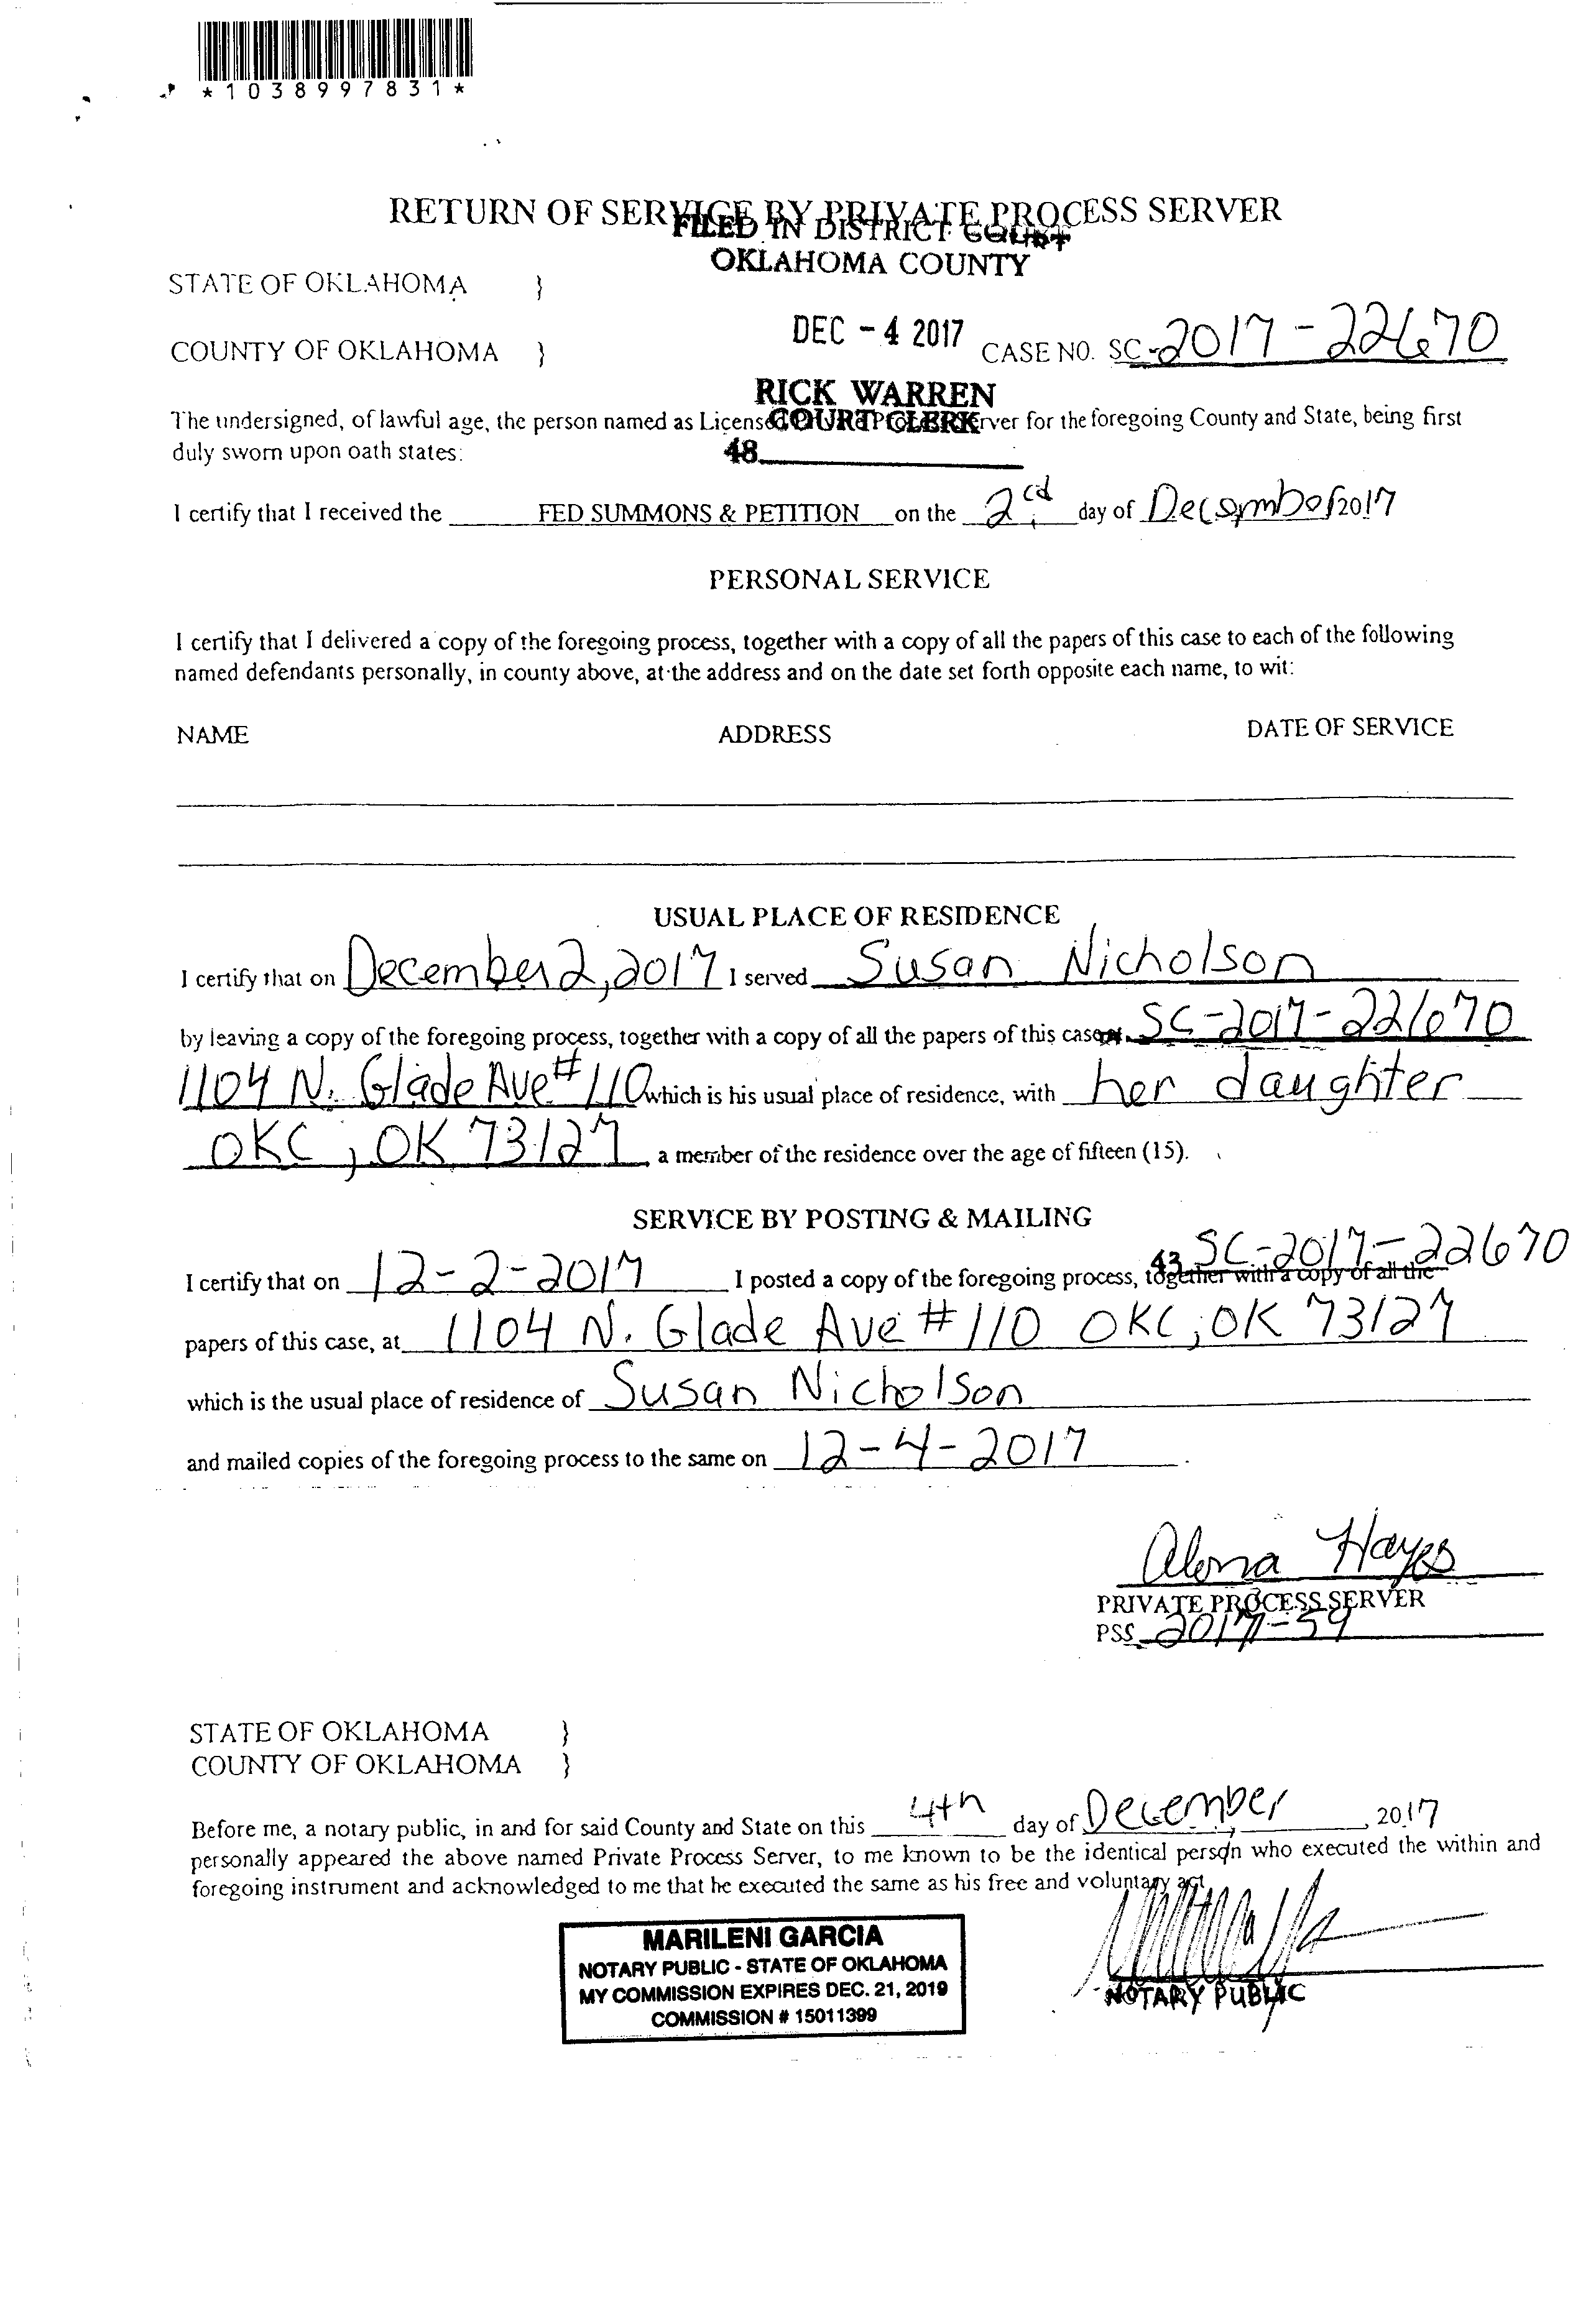 *1038997831*
RETURN OF SERVICE BY PRIVATE PROCESS SERVER
FILED IN DISTRICT COURT
OKLAHOMA COUNTY
STATE OF OKLAHOMA }
DEC - 4 2017
COUNTY OF OKLAHOMA } CASE NO. SC-2017-22670
RICK WARREN
COURT CLERK
The undersigned, of lawful age, the person named as Licensed Private Process Server for the foregoing County and State, being first
duly sworn upon oath states:
48
I certify that I received the FED SUMMONS & PETITION on the 2cd day of December 2017
PERSONAL SERVICE
I certify that I delivered a copy of the foregoing process, together with a copy of all the papers of this case to each of the following
named defendants personally, in county above, at the address and on the date set forth opposite each name, to wit:
NAME ADDRESS DATE OF SERVICE
USUAL PLACE OF RESIDENCE
I certify that on December 2, 2017 I served Susan Nicholson
by leaving a copy of the foregoing process, together with a copy of all the papers of this case SC-2017-22670
1104 N. Glade Ave #110 which is his usual place of residence, with her daughter
OKC, OK 73127 a member of the residence over the age of fifteen (15).
SERVICE BY POSTING & MAILING
43 SC-2017-22670
I certify that on 12-2-2017 I posted a copy of the foregoing process, together with a copy of all the
papers of this case, at 1104 N. Glade Ave #110 OKC, OK 73127
which is the usual place of residence of Susan Nicholson
and mailed copies of the foregoing process to the same on 12-4-2017.
Alona Hayes
PRIVATE PROCESS SERVER
PSS 2017-59
STATE OF OKLAHOMA }
COUNTY OF OKLAHOMA }
Before me, a notary public, in and for said County and State on this 4th day of December, 2017
personally appeared the above named Private Process Server, to me known to be the identical person who executed the within and
foregoing instrument and acknowledged to me that he executed the same as his free and voluntary act.
MARILENI GARCIA
NOTARY PUBLIC - STATE OF OKLAHOMA
MY COMMISSION EXPIRES DEC. 21, 2019
COMMISSION # 15011399
NOTARY PUBLIC